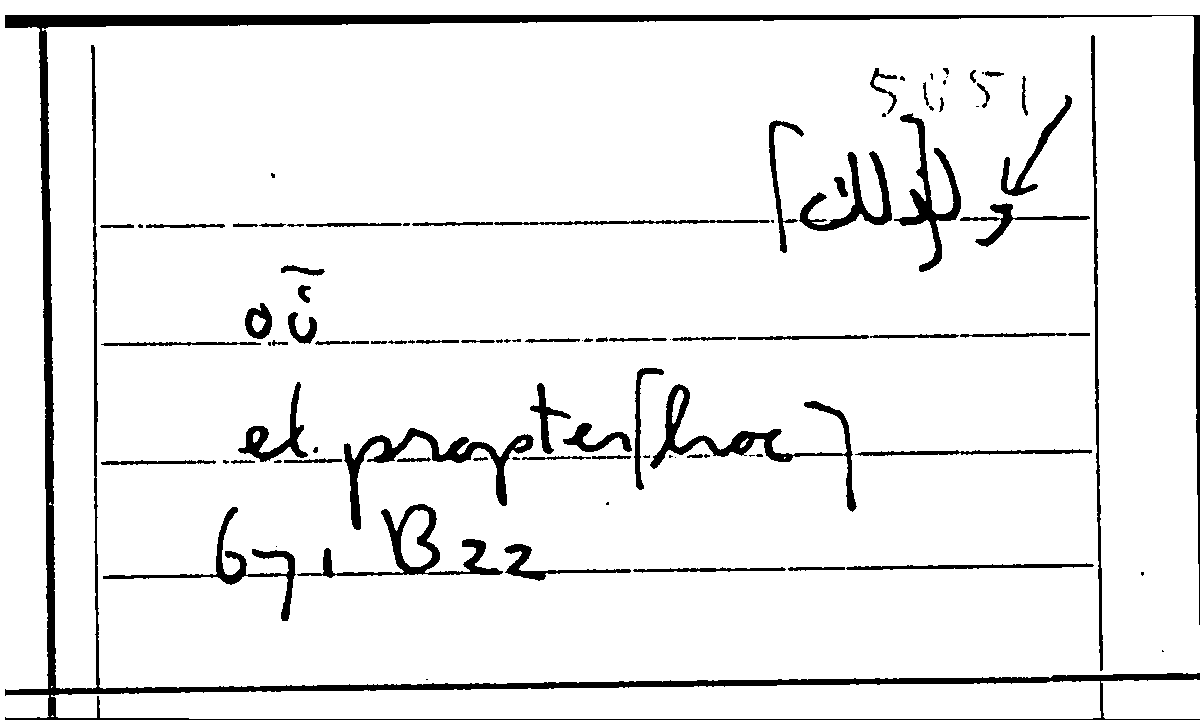 5651
و ل[ذلك]
οὗ
et propter [hoc]
671 B22